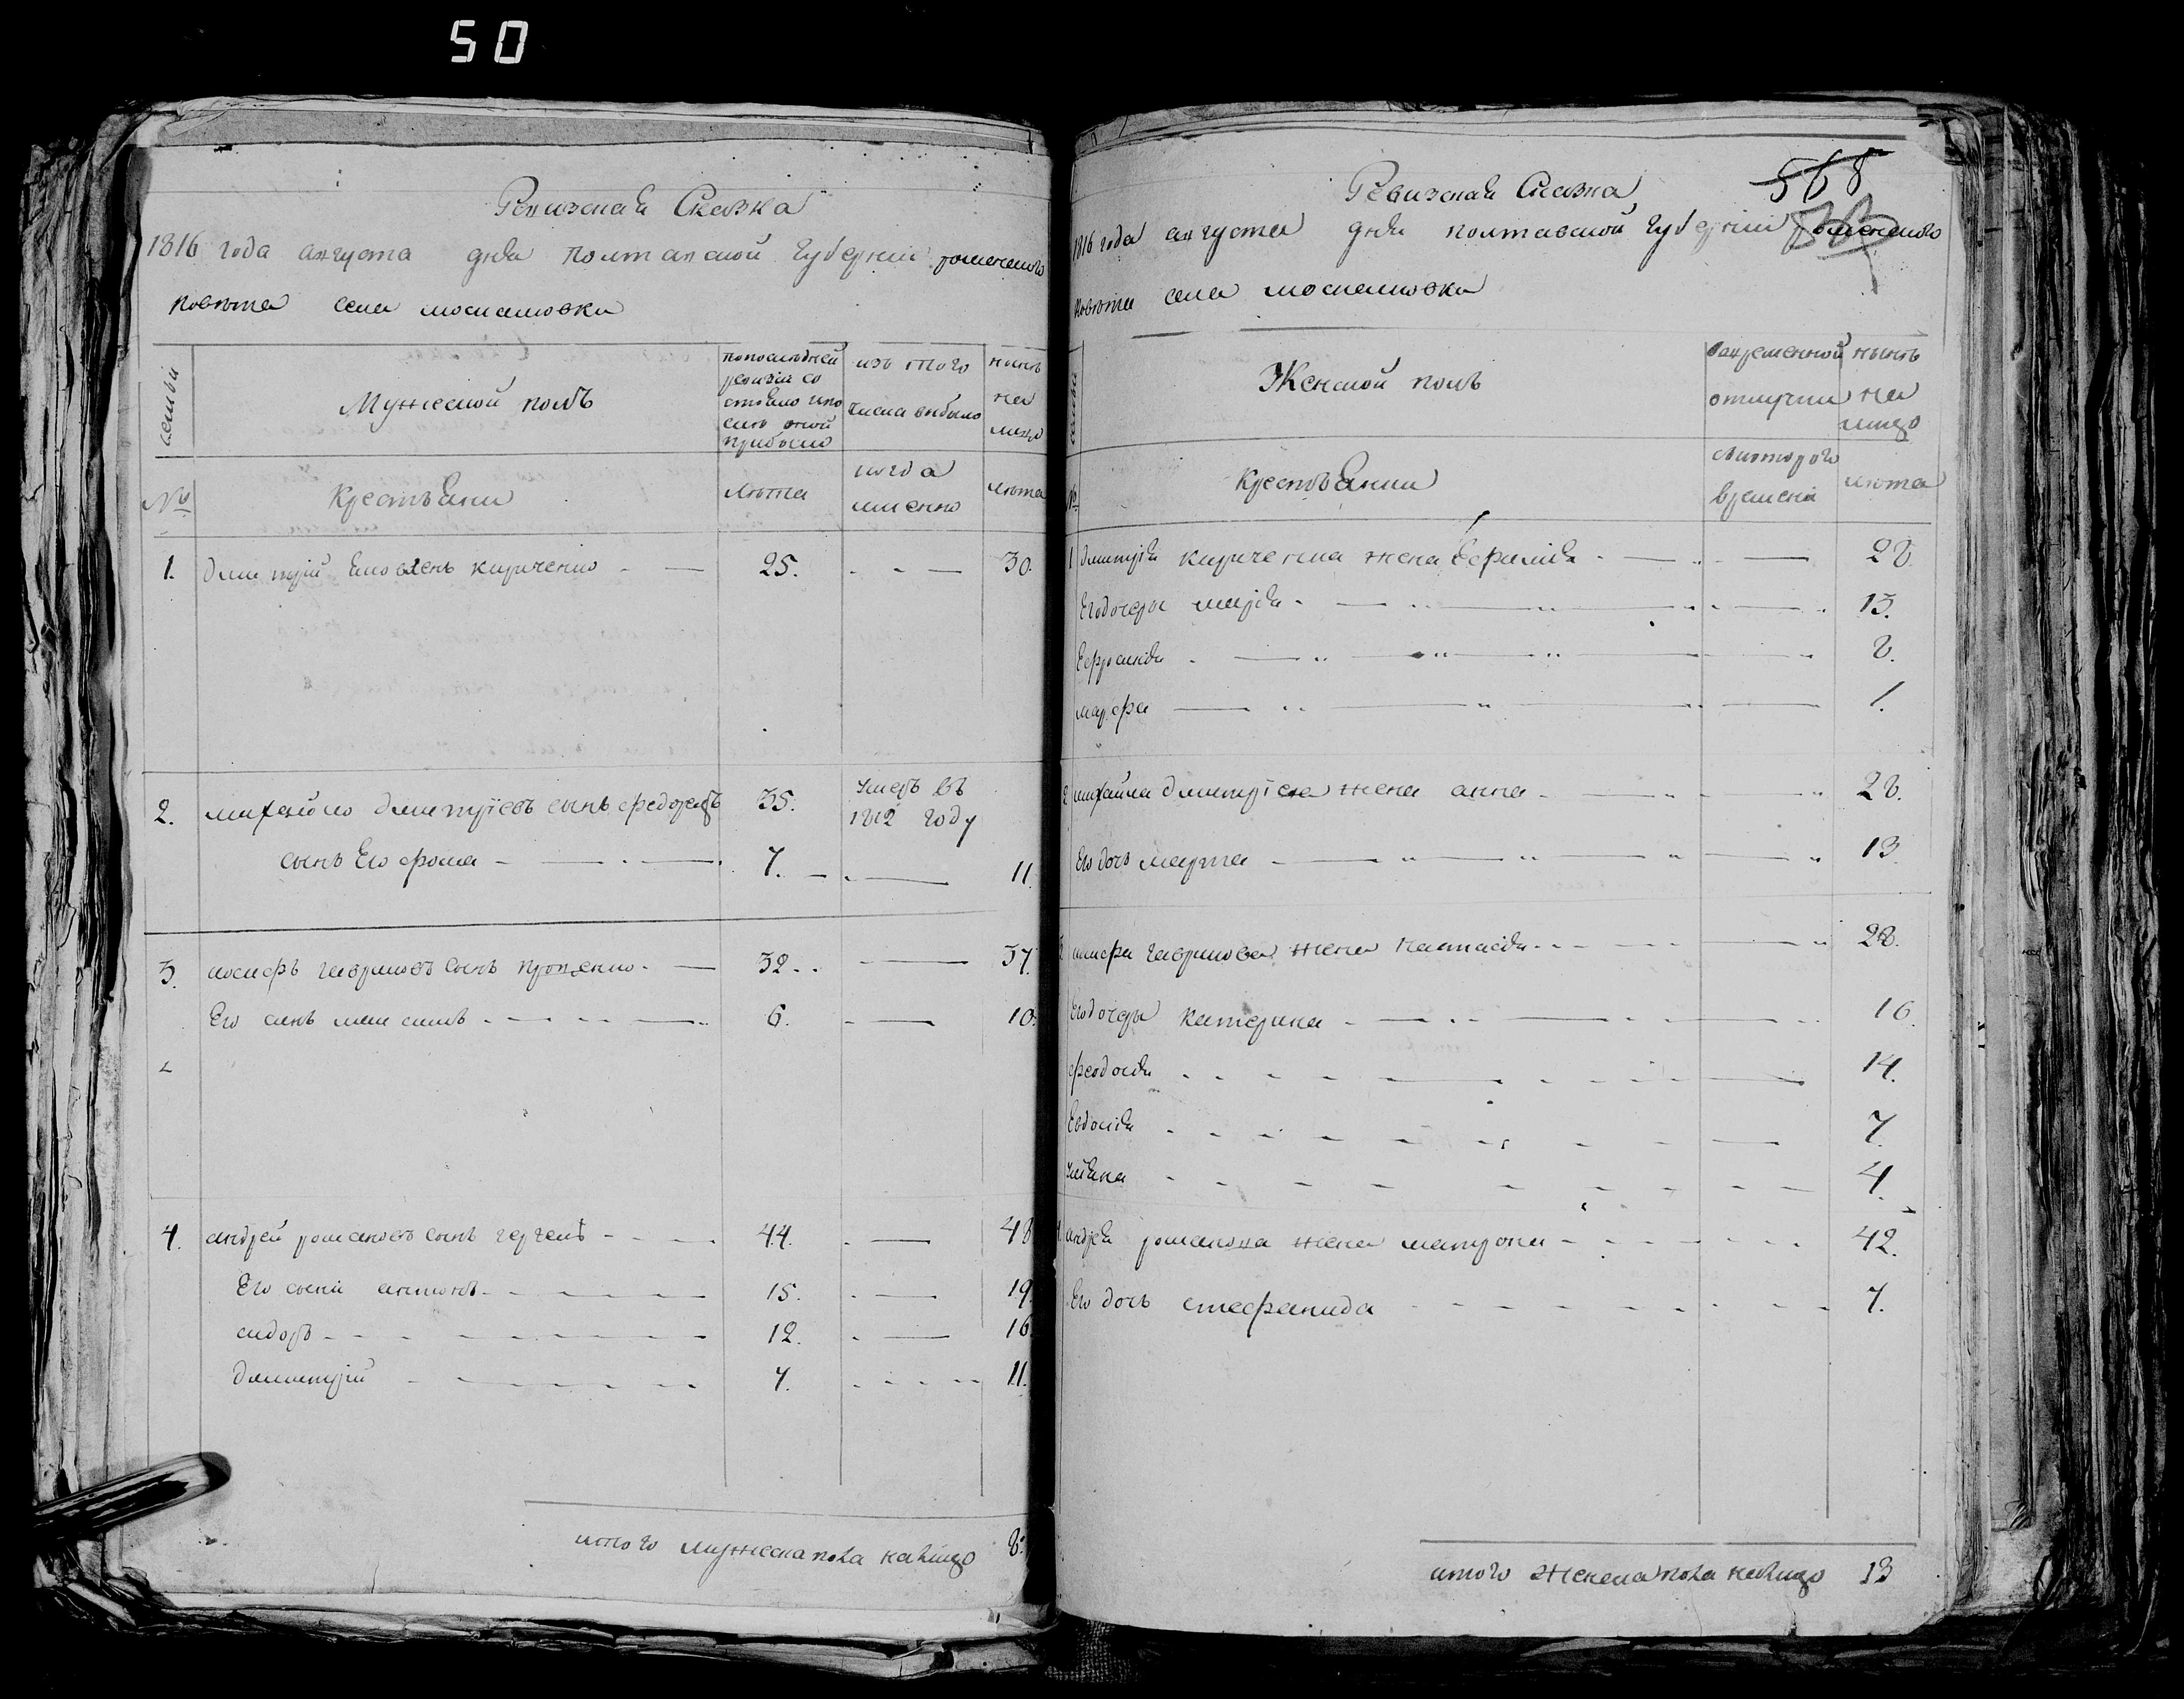 50
Ревизская Сказка
1816 года августа дня полтавской губернии роменского
повета села москаловки
семьи
Мужеской полъ
попоследней ревизіи состояло и после оной прибыло
изъ того числа выбыло
ныне на лицо
№
Крестьяни
лета
когда именно
лета
1. дмитрій Яковленъ кириченко 25. 30.
2. михайло дмитріевъ сынъ 35. умеръ въ 1812 году
сынъ Его фома 7. 11.
3. иосифъ гавриловъ сынъ проценко 32. 37.
Его синъ максимъ 6. 10.
4. андрей романовъ сынъ 44. 48
Его сыни антонъ 15. 19.
сидоръ 12. 16
дмитрій 7. 11.
итого мужеска пола налицо 8.
568
Ревизская Сказка
1816 года августа дня полтавской губерніи роменского
повета села москаловки
семьи
Женской полъ
вовременной отлучки
ныне на лицо
№
Крестьянки
скоторого времени
лета
1 дмитрія кириченка жена Ефимія 28.
Егодочеры марія 13.
Ефросинія 8.
марфа 1.
2 михайла дмитріева жена анна 28.
Его дочь марта 13.
3 иосифа гаврилова жена настасія 28.
Егодочеры катерина 16.
феодосія 14.
Евдокія 7.
уліяна 4.
4. андрея романова жена матрона 42.
Его дочь стефанида 7.
итого женска пола налицо 13